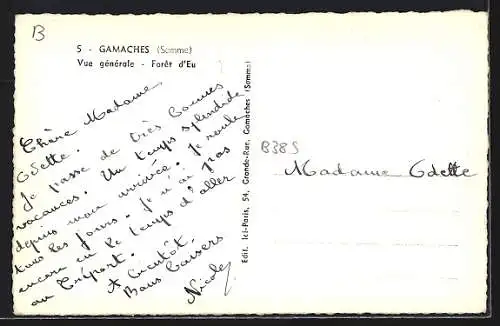 B
5 - GAMACHES (Somme)
Vue générale - Forêt d'Eu
Chère Madame
Odette.
Je passe de très bonnes
vacances. Un temps splendide
depuis mon arrivée. Je roule
tous les jours. Je n'ai pas
encore eu le temps d'aller
au Tréport.
A bientôt,
Bons baisers
Nicole
Edit. Ici-Paris, 54, Grande-Rue, Gamaches (Somme)
B385
Madame Odette